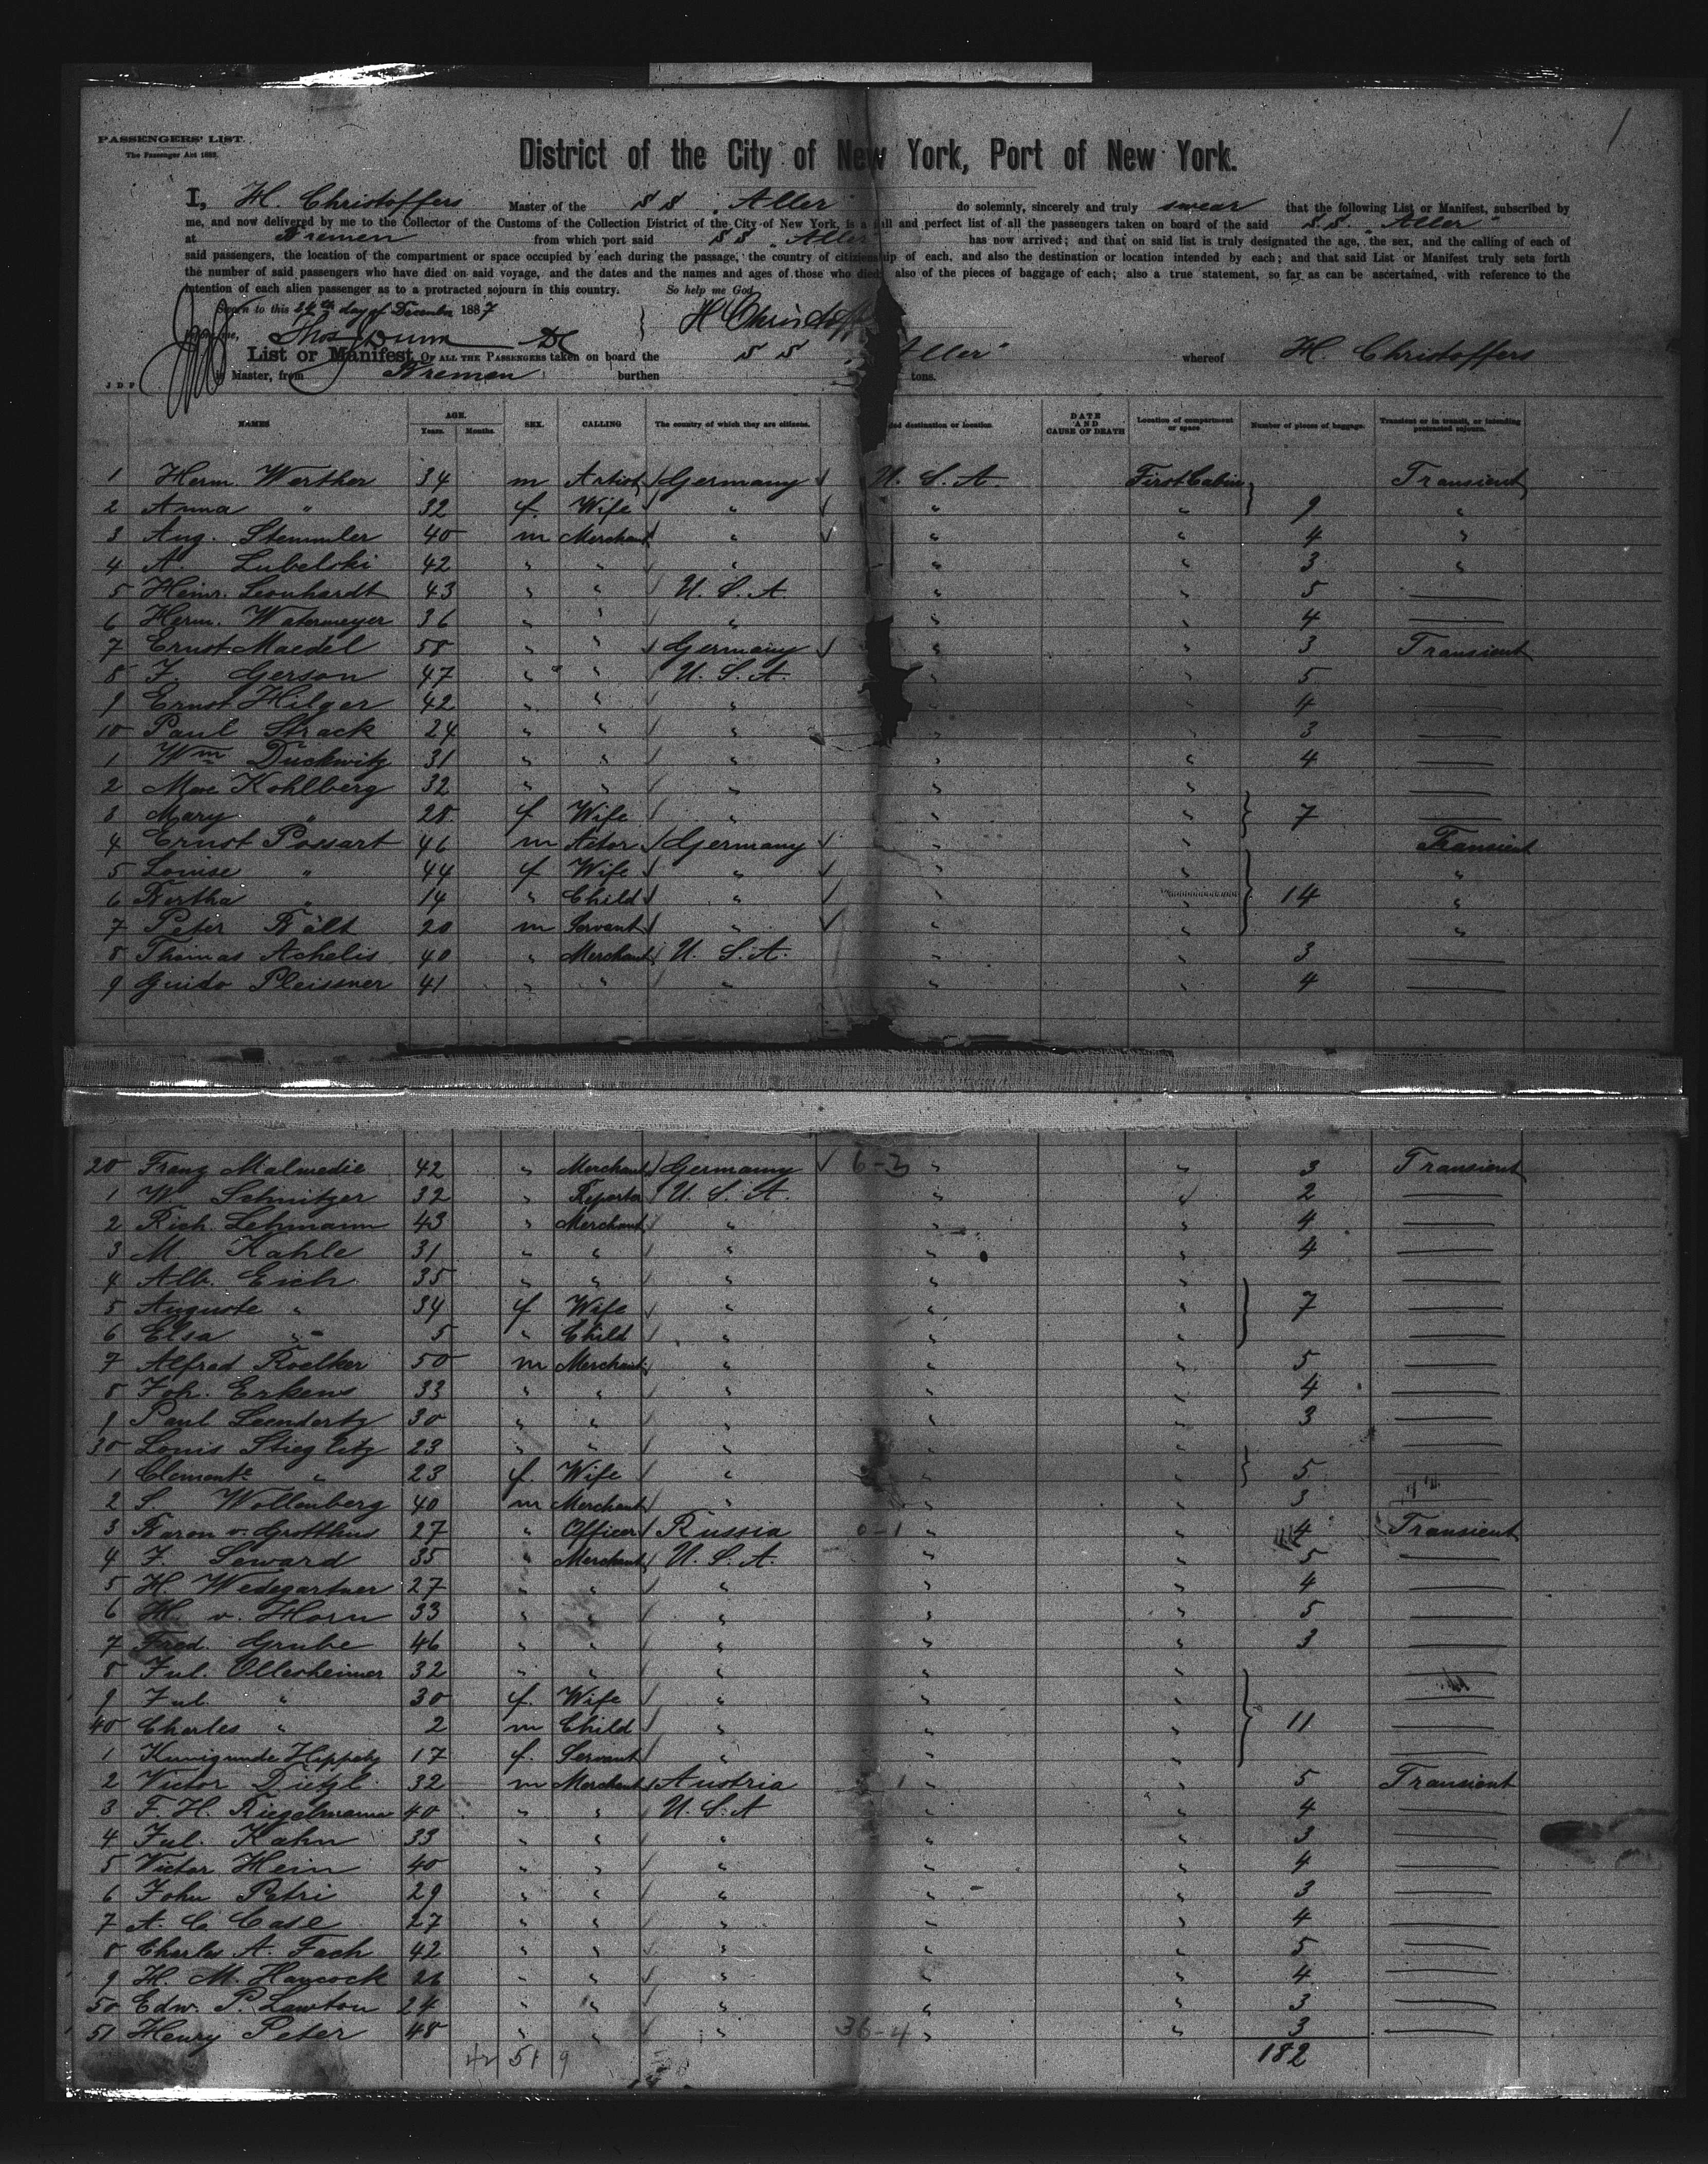 1
PASSENGERS' LIST.
The Passenger Act 1882.
District of the City of New York, Port of New York.
I, H. Christoffers Master of the SS. "Aller" do solemnly, sincerely and truly swear that the following List or Manifest, subscribed by
me, and now delivered by me to the Collector of the Customs of the Collection District of the City of New York, is a full and perfect list of all the passengers taken on board of the said S.S. "Aller"
at Bremen from which port said SS "Aller has now arrived; and that on said list is truly designated the age, the sex, and the calling of each of
said passengers, the location of the compartment or space occupied by each during the passage, the country of citizenship of each, and also the destination or location intended by each; and that said List or Manifest truly sets forth
the number of said passengers who have died on said voyage, and the dates and the names and ages of those who died; also of the pieces of baggage of each; also a true statement, so far as can be ascertained, with reference to the
intention of each alien passenger as to a protracted sojourn in this country. So help me God
Sworn to this 24th day of December 1887 H Christoff
me, Thos Dunn
List or Manifest OF ALL THE PASSENGERS taken on board the SS "Aller" whereof H. Christoffers
is Master, from Bremen burthen tons.
J D P
NAMES AGE. Years. Months. SEX. CALLING The country of which they are citizens. destination or location. DATE AND CAUSE OF DEATH Location of compartment or space. Number of pieces of baggage. Transient or in transit, or intending protracted sojourn.
1 Herm. Werther 34 m Artist Germany U. S. A. First Cabin Transient
2 Anna " 32 f. Wife " " " 9 "
3 Aug. Stemmler 40 m Merchant " " " 4 "
4 A. Lubelski 42 " " " " " 3 "
5 Heinr. Leonhardt 43 " " U. S. A. " " 5 —
6 Herm. Watermeyer 36 " " " " " 4 —
7 Ernst Maedel 58 " " Germany " " 3 Transient
8 F. Gerson 47 " " U. S. A. " " 5 —
9 Ernst Hilger 42 " " " " " 4 —
10 Paul Strack 24 " " " " " 3 —
1 Wm Duckwitz 31 " " " " " 4 —
2 Max Kohlberg 32 " " " " " —
3 Mary " 28 f Wife " " " 7 —
4 Ernst Possart 46 m Actor Germany " " Transient
5 Louise " 44 f Wife " " " "
6 Bertha " 14 " Child " " " 14 "
7 Peter Bält 20 m Servant " " " "
8 Thomas Achelis 40 " Merchant U. S. A. " " 3 —
9 Guido Pleissner 41 " " " " " 4 —
20 Franz Malmedie 42 " Merchant Germany 6-3 " " 3 Transient
1 W. Schnitzer 32 " Reporter U. S. A. " " 2 —
2 Rich. Lehmann 43 " Merchant " " " 4 —
3 M. Kahle 31 " " " " " 4 —
4 Alb. Eich 35 " " " " " —
5 Auguste " 34 f Wife " " " 7 —
6 Elsa " 5 " Child " " " —
7 Alfred Roelker 50 m Merchant " " " 5 —
8 Joh. Erkens 33 " " " " " 4 —
9 Paul Leendertz 30 " " " " " 3 —
30 Louis Stieglitz 23 " " " " " —
1 Clemente " 23 f. Wife " " " 5 —
2 S. Wollenberg 40 m Merchant " " " 3 —
3 Baron v. Grotthus 27 " Officer Russia 0-1 " " 4 Transient
4 F. Seward 35 " Merchant U. S. A. " " 5 —
5 H. Wedegartner 27 " " " " " 4 —
6 H. v. Horn 33 " " " " " 5 —
7 Fred. Grube 46 " " " " " 3 —
8 Jul. Ollesheimer 32 " " " " " —
9 Jul. " 30 f. Wife " " " —
40 Charles " 2 m Child " " " 11 —
1 Kunigunde 17 f. Servant " " " —
2 Victor Dietzl 32 m Merchant Austria 1 " " 5 Transient
3 F. H. Riegelmann 40 " " U. S. A " " 4 —
4 Jul. Kahn 33 " " " " " 3 —
5 Victor Hein 40 " " " " " 4 —
6 John Petri 29 " " " " " 3 —
7 A. C. Case 27 " " " " " 4 —
8 Charles A. Fach 42 " " " " " 5 —
9 H. M. Hancock 26 " " " " " 4 —
50 Edw. P. Lawton 24 " " " " " 3 —
51 Henry Peter 48 " " " 36-4 " " 3 —
42 51 9 182